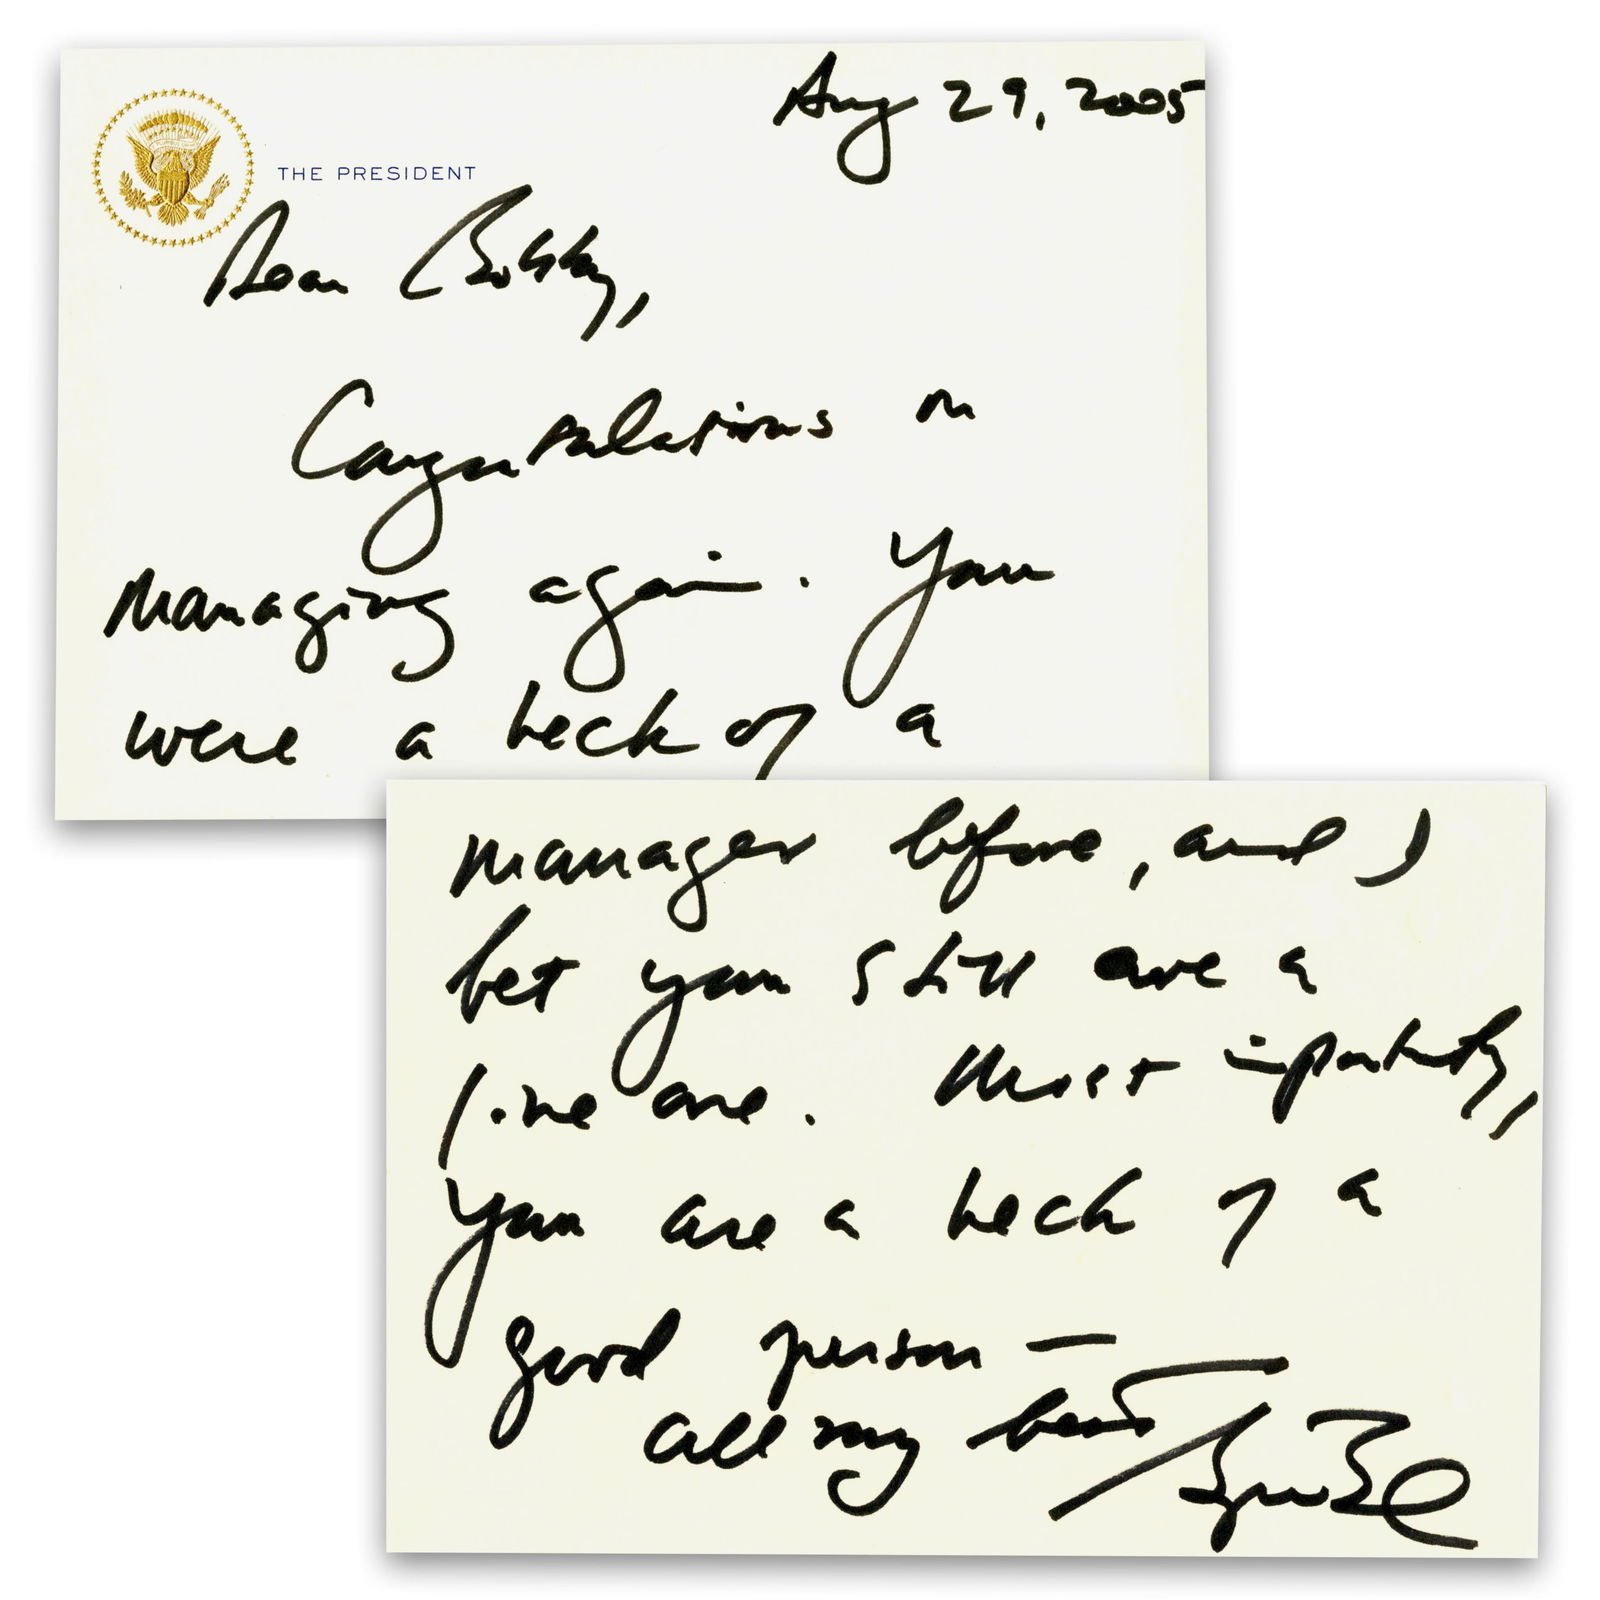 Aug 29, 2005
THE PRESIDENT
Dear Bobby,
Congratulations on
managing again. You
were a heck of a
manager before, and I
bet you still are a
fine one. Most importantly,
you are a heck of a
good person —
all my best